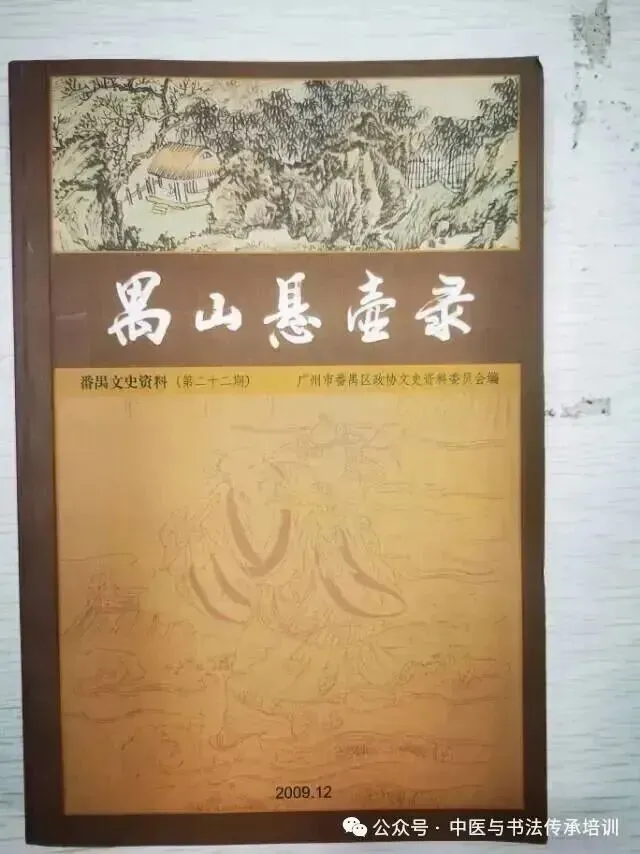 禺山悬壶录
番禺文史资料（第二十二期） 广州市番禺区政协文史资料委员会编
2009.12
公众号·中医与书法传承培训